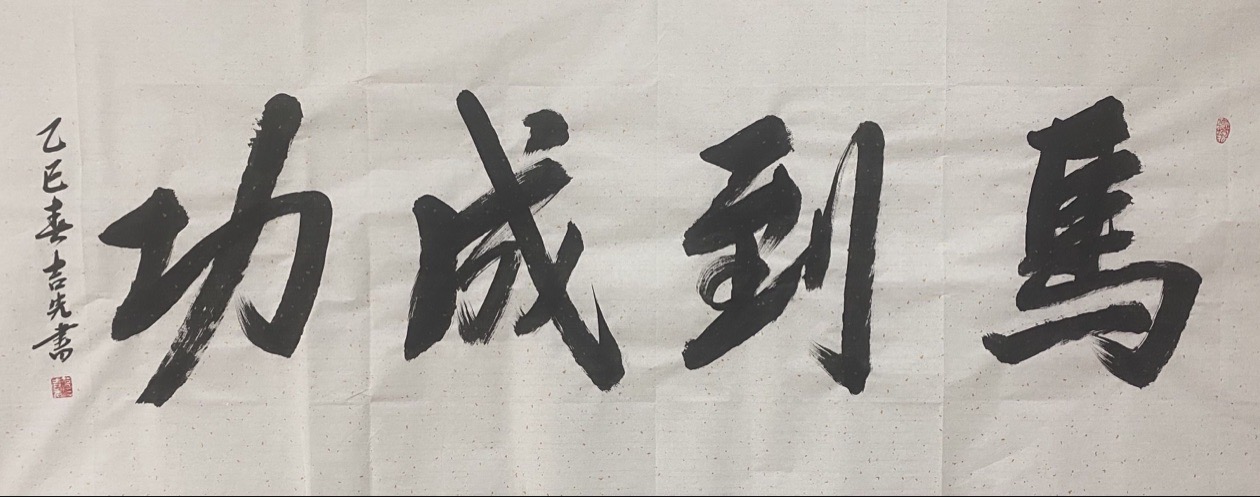 馬到成功
乙巳春吉先書